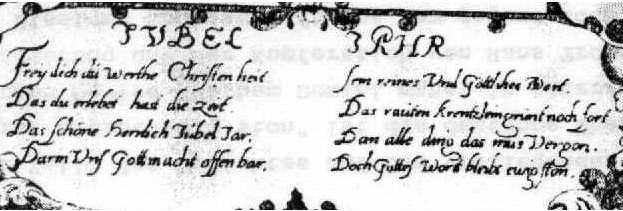 IVBEL IAHR
Frey dich du werthe Christen heit
Das du erlebet hast die Zeit
Das schöne Herrlich Jubel Jar,
Darin Uns Gott macht offen bar,
Sein reines Und Göttliches Wort
Das rauten krentzlein grünt noch fort
Dan alle ding das mus Vergon.
Doch Gottes Wort bleibt ewig ston.